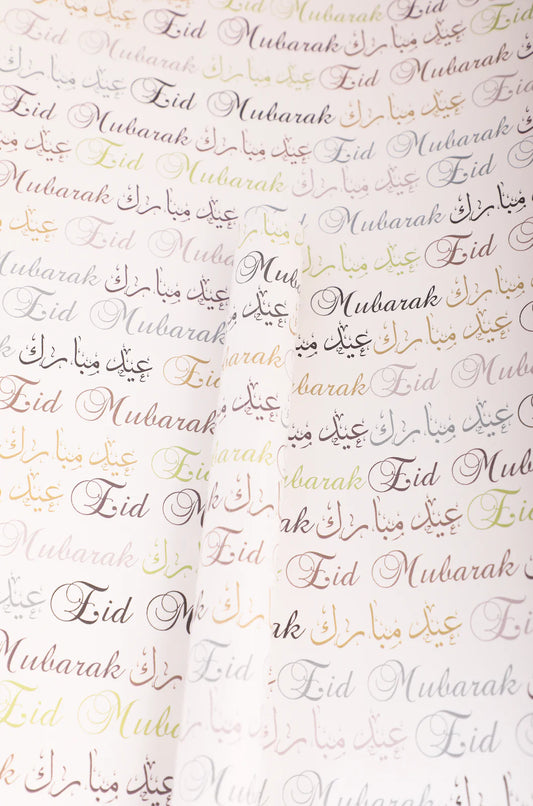 Eid Mubarak عيد مبارك Eid
Mubarak عيد مبارك
Eid Mubarak عيد مبارك
Mubarak عيد مبارك Eid Mubarak
عيد مبارك Eid Mubarak عيد مبارك Eid
Eid Mubarak عيد مبارك Eid Mubarak
عيد مبارك Eid Mubarak عيد مبارك
Mubarak عيد مبارك Eid Mubarak عيد مبارك
عيد Eid Mubarak عيد مبارك Eid
Mubarak عيد مبارك Mubarak عيد مبارك
Eid Mubarak عيد عيد مبارك
عيد مبارك Eid Mubarak
Eid Mubarak عيد عيد مبارك Eid
عيد مبارك Eid Eid Mubarak
عيد Eid Mubarak عيد مبارك Eid
Mubarak Eid Mubarak
عيد Eid Mubarak عيد مبارك Eid
Mubarak عيد مبارك Eid Mubarak
Eid Mubarak عيد مبارك Eid
عيد مبارك Eid Mubarak